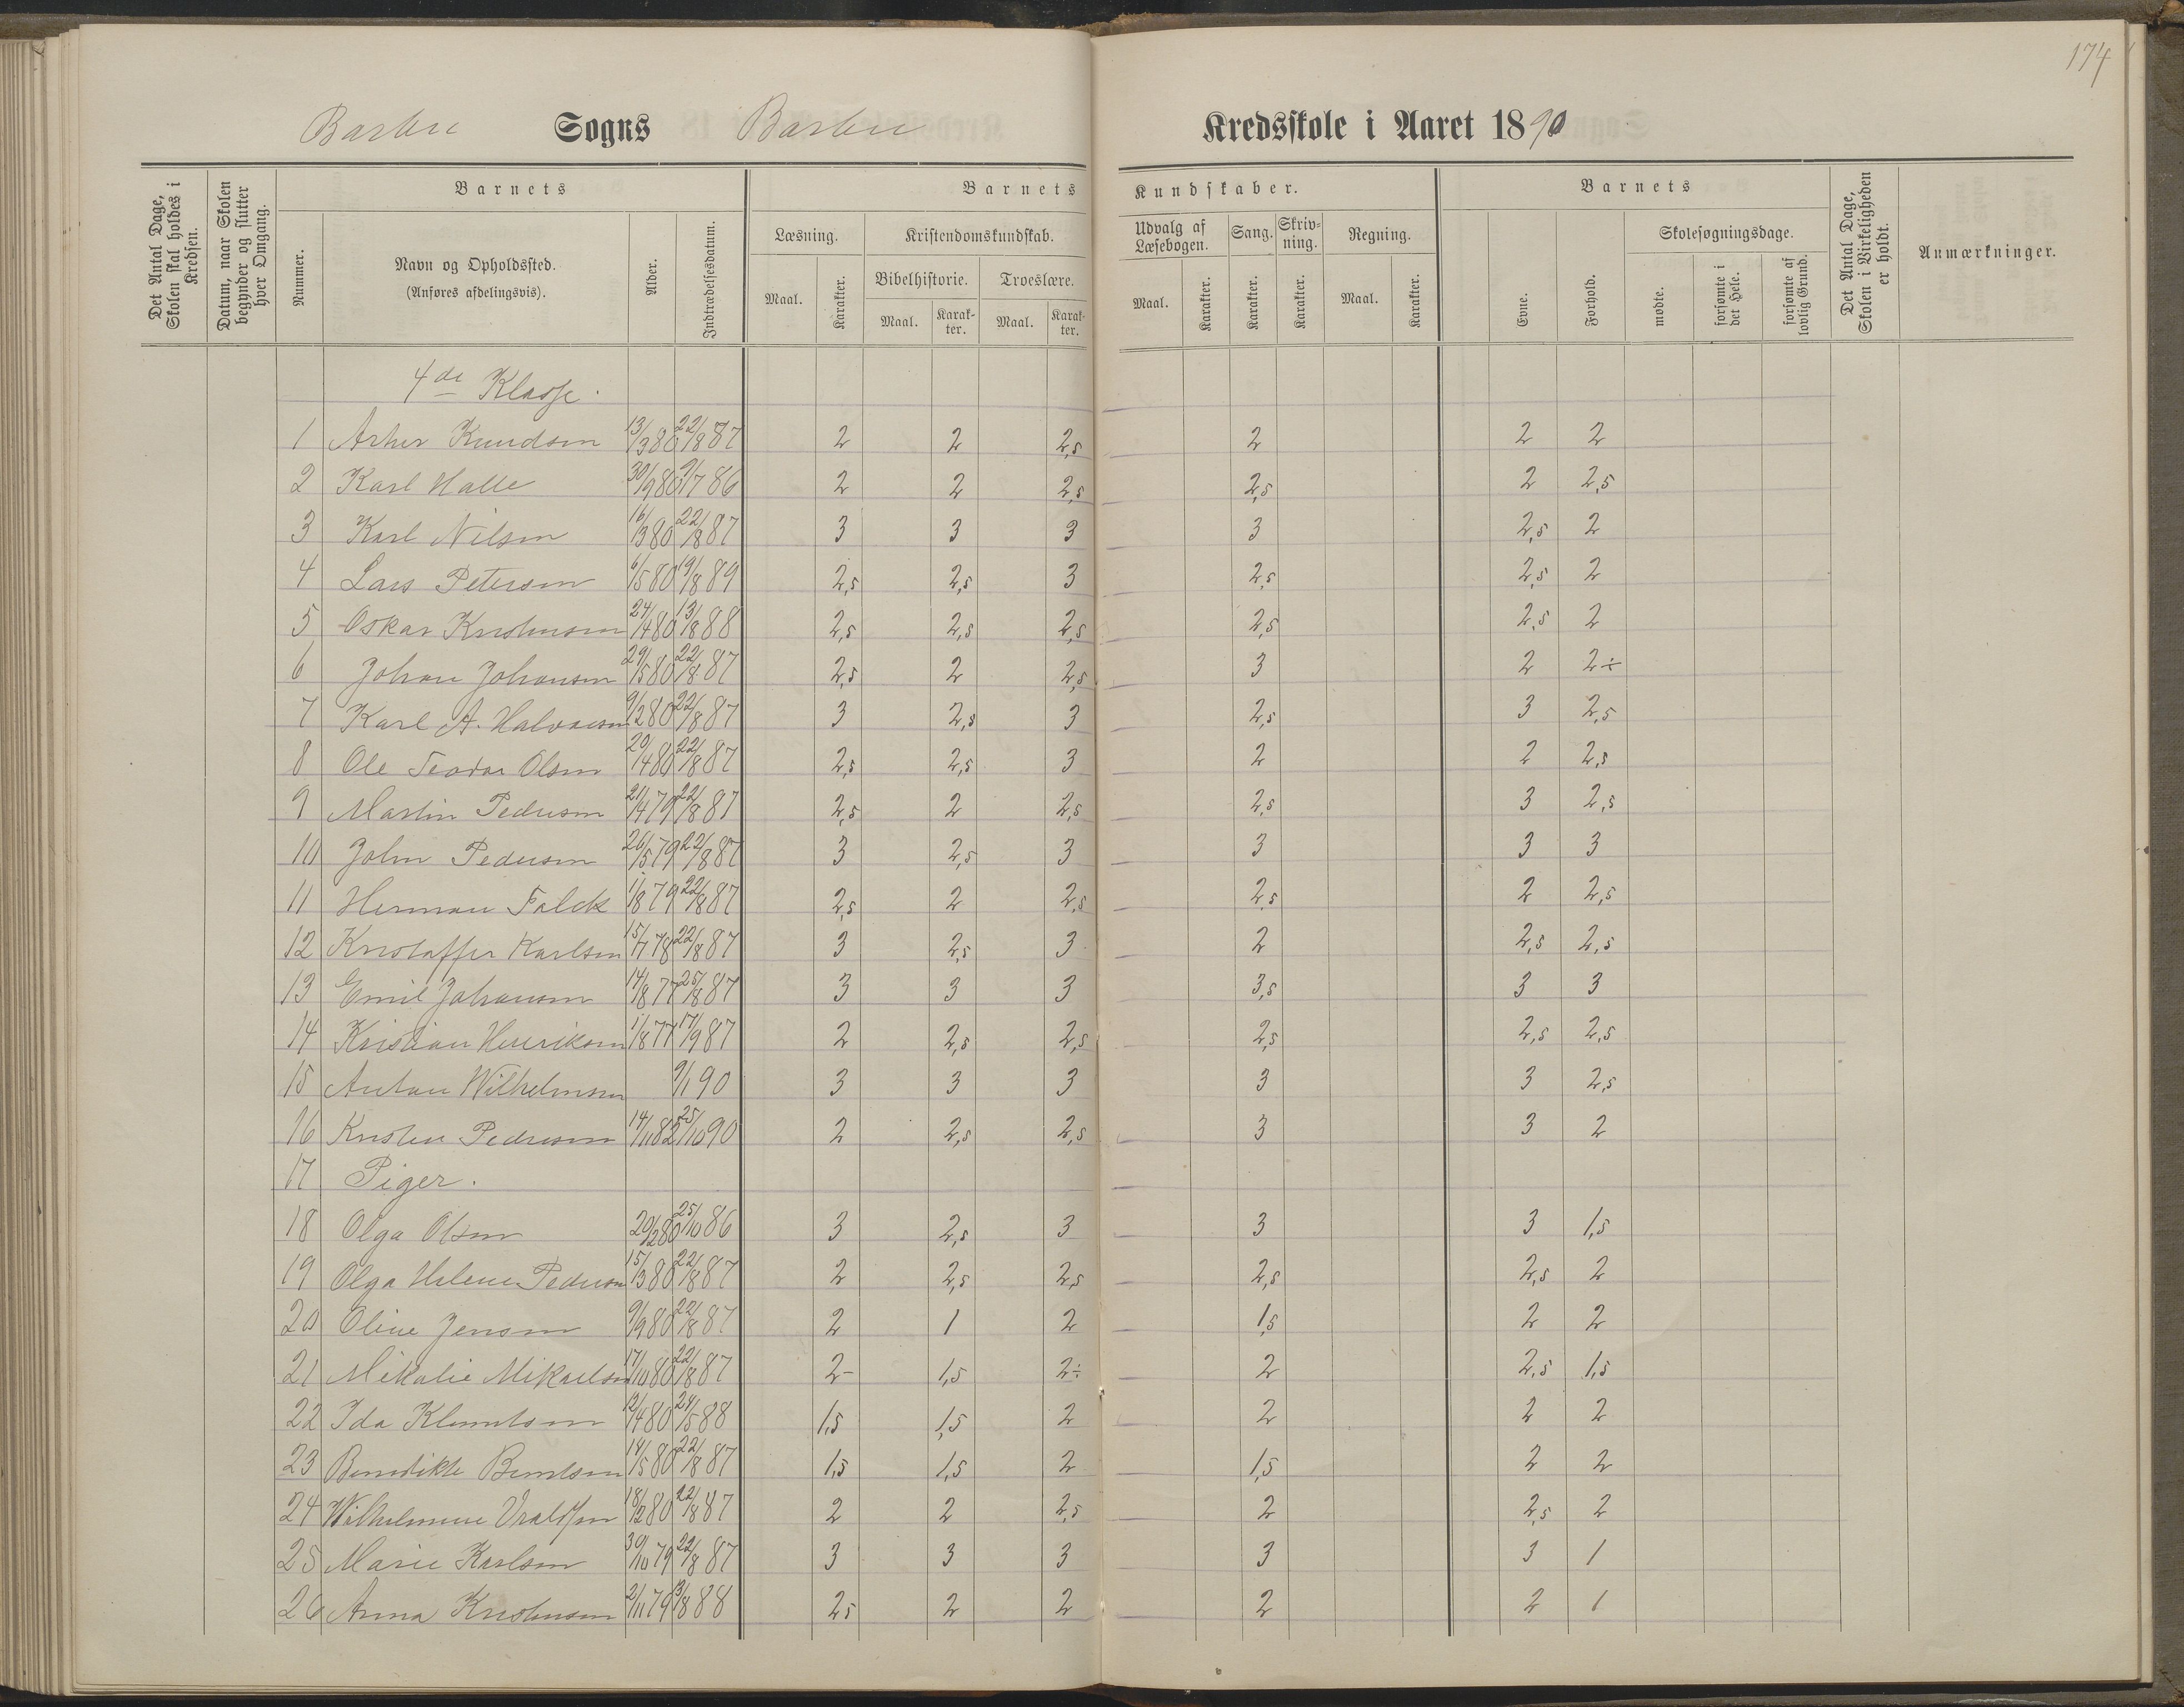 174
Barbu Sogns Barbu Kredsskole i Aaret 1890
Det Antal Dage, Skolen skal holdes i Kredsen.
Datum, naar Skolen begynder og slutter hver Omgang.
Barnets
Nummer.
Navn og Opholdssted.
(Anføres afdelingsvis).
Alder.
Indtrædelsesdatum.
Barnets Kundskaber.
Læsning.
Maal. Karakter.
Kristendomskundskab.
Bibelhistorie. Troeslære.
Maal. Karakter. Maal. Karakter.
Udvalg af Læsebogen. Sang. Skrivning. Regning.
Maal. Karakter. Karakter. Karakter. Maal. Karakter.
Barnets
Evne. Forhold.
Skolesøgningsdage.
mødte. forsømte i det Hele. forsømte af lovlig Grund.
Det Antal Dage, Skolen i Virkeligheden er holdt.
Anmærkninger.
4de Klasse.
1 Knudsen 13/3 80 22/8 87 2 2 2,5 2 2 2
2 Karl Halle 30/9 80 9/7 86 2 2 2,5 2,5 2 2,5
3 Karl Nilsen 16/3 80 22/8 87 3 3 3 3 2,5 2
4 Lars Petersen 6/5 80 19/8 89 2,5 2,5 3 2,5 2,5 2
5 Oskar Kristensen 24/4 80 13/8 88 2,5 2,5 2,5 2,5 2,5 2
6 Johan Johansen 29/5 80 22/8 87 2,5 2 2,5 3 2 2÷
7 Karl A. Halvorsen 9/2 80 22/8 87 3 2,5 3 2,5 3 2,5
8 Ole Teodor Olsen 20/4 80 22/8 87 2,5 2,5 3 2 2 2,5
9 Martin Pedersen 21/4 79 22/8 87 2,5 2 2,5 2,5 3 2,5
10 John Pedersen 26/5 79 22/8 87 3 2,5 3 3 3 3
11 Herman Falck 1/8 79 22/8 87 2,5 2 2,5 2,5 2 2,5
12 Kristoffer Karlsen 15/7 78 22/8 87 3 2,5 3 2 2,5 2,5
13 Emil Johansen 14/8 77 25/8 87 3 3 3 3,5 3 3
14 Kristian Henriksen 1/8 77 17/9 87 2 2,5 2,5 2,5 2,5 2,5
15 Anton Wilhelmsen 9/1 90 3 3 3 3 3 2,5
16 Kristen Pedersen 14/11 82 25/10 90 2 2,5 2,5 3 3 2
17 Piger.
18 Olga Olsen 20/2 80 25/10 86 3 2,5 3 3 3 1,5
19 Olga Helene Pedersen 15/3 80 22/8 87 2 2,5 2,5 2,5 2,5 2
20 Oline Jensen 9/9 80 22/8 87 2 1 2 1,5 2 2
21 Mikalie Mikaelsen 17/10 80 22/8 87 2- 1,5 2÷ 2 2,5 1,5
22 Ida Klemetsen 12/4 80 24/5 88 1,5 1,5 2 2 2 2
23 Benedikte Berntsen 14/5 80 22/8 87 1,5 1,5 2 1,5 2 2
24 Wilhelmine 18/2 80 22/8 87 2 2 2,5 2 2,5 2
25 Marie Karlsen 30/10 79 22/8 87 3 3 3 3 3 1
26 Anna Kristensen 2/11 79 13/8 88 2,5 2 2 2 2 1